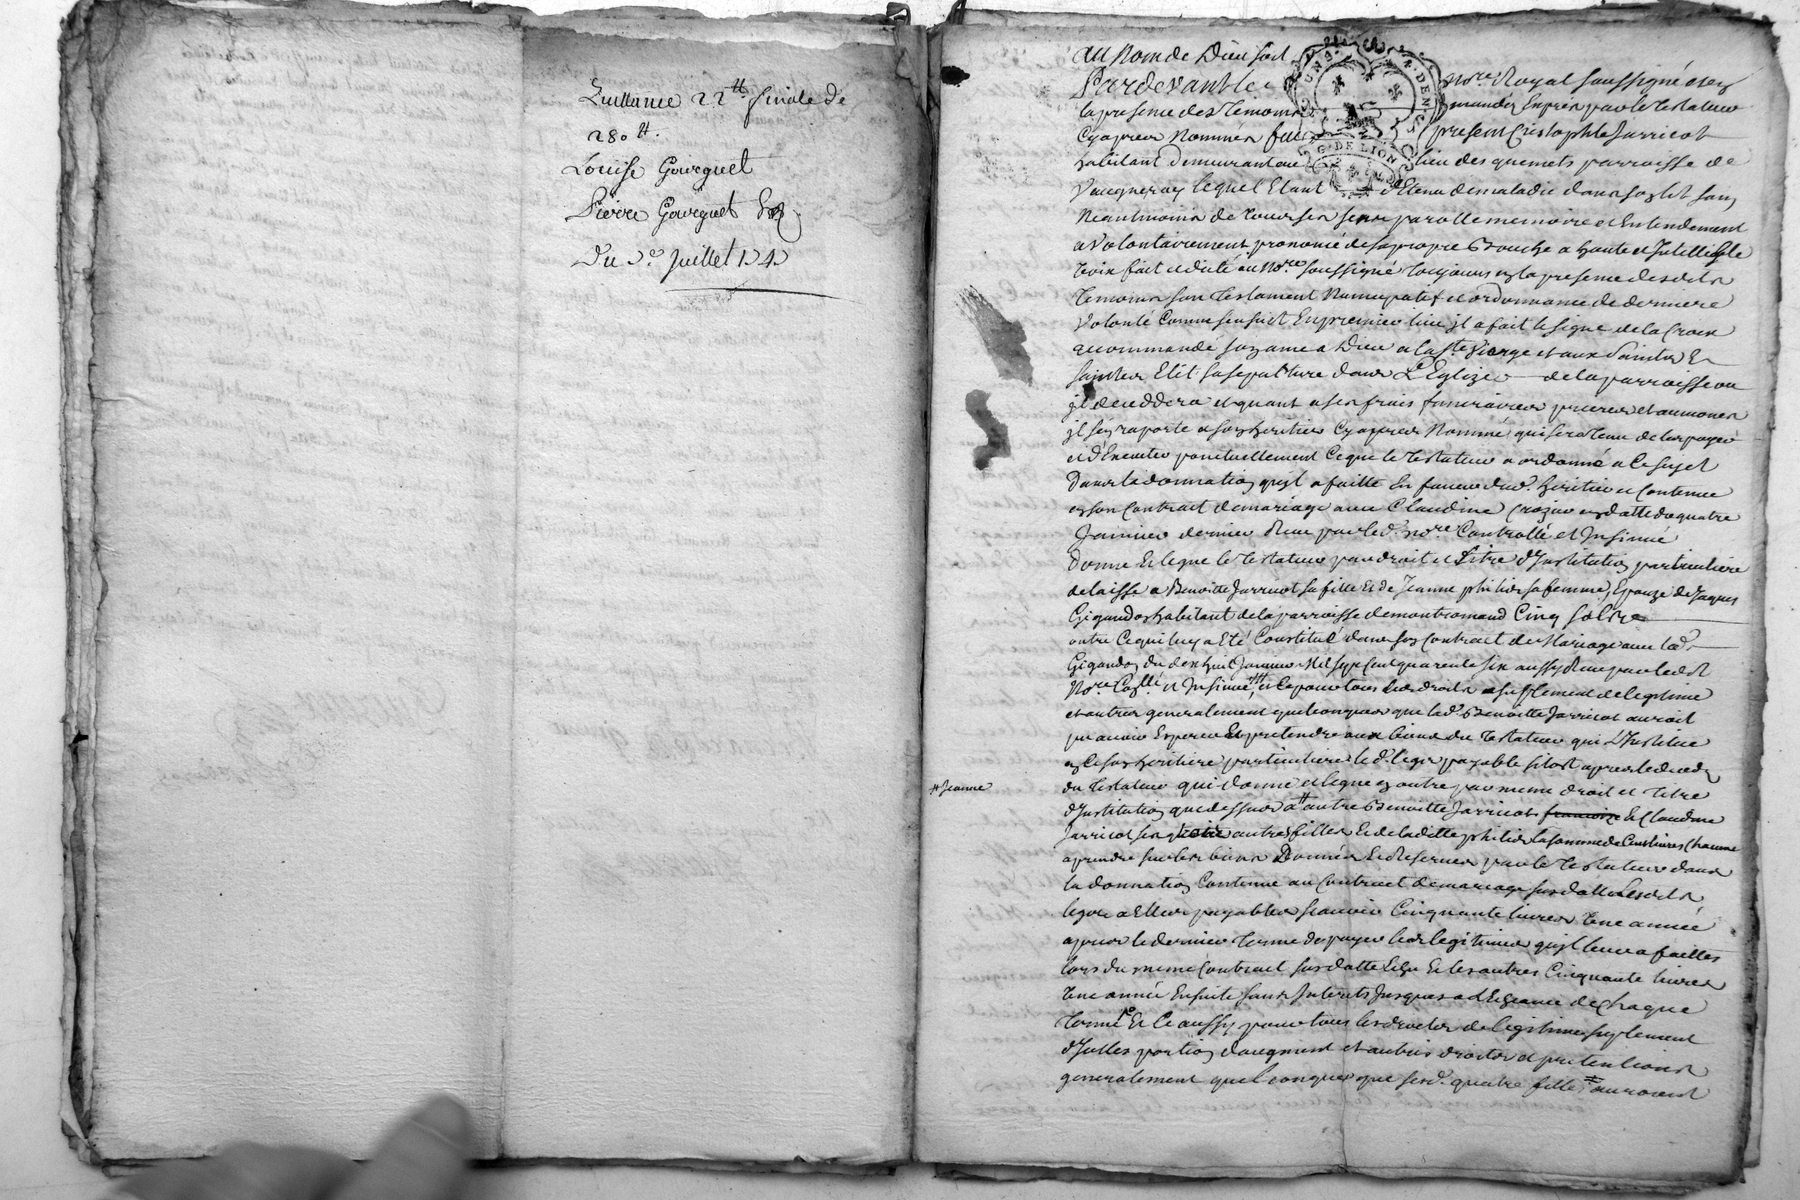 Quittance 22tt finale de
280tt.
Louise Gourguet
Pierre Gourguet
Du Juillet
Au Nom de Dieu soit
Pardevant le nore Royal soussigné et en
la presence des temoins mandez Exprès par le testateur
Cy apres Nommés fut present Cristophle Jarricot
habitant demeurant au lieu des quemets parroisse de
Vaugneray lequel Etant d'Etenu de maladie dans son lit sain
Neantmoins de tous ses sens parolle memoire et Entendement
a Volontairement prononcé de sa propre Bouche a haute et Intelligible
voix fait et dicté au Nore soussigné toujours en la presence desdits
temoins son testament Nuncupatif et ordonnance de derniere
Volonté Comme s'ensuit En premier lieu il a fait le signe de la Croix
recommandé son ame a Dieu a la ste Vierge et aux saints Et
saintes Elit sa sepulture dans L'Eglize de la parroisse ou
il deceddera et quant a ses frais funeraires prieres et aumones
il s'en raporte a son heritier Cy apres Nommé qui sera tenu de les payer
et d'Executer ponctuellement Ce que le testateur a ordonné a Ce sujet
Dans la donnation qu'il a faitte En faveur dud. heritier et Contenue
en son Contract de mariage avec Claudine Crozier en datte du quatre
Janvier dernier Reçu par led. nore Controllé et Insinué
Donne Et legue le testateur par droit et titre d'Institution particuliere
delaisse a Benoitte Jarricot sa fille Et de Jeanne philis sa femme, Epouze de Jaques
Gigandon habitant de la parroisse de montromand Cinq sols
outre Ce qui luy a Eté Constitué dans son Contract de Mariage avec led.
Gigandon du dix huit Janvier Mil sept Cent quarente six aussy Reçu par led.
Nore Collé et Insinué, et Ce pour tous ses droits et suplement de legitime
et autres generalement quelconques que lad. Benoitte Jarricot auroit
pu avoir Esperer Et pretendre aux biens du testateur qui L'Institue
en Ce son heritiere particuliere led. legs payable sitost apres le deceds
du testateur qui donne et legue en outre par meme droit et titre
# Jeanne
d'Institution que dessus a # autre Benoitte Jarricot francoize Et Claudine
Jarricot ses trois autres filles Et de laditte philis la somme de Cent livres Chacune
a prendre sur les biens Donnés Et Reservés par le testateur dans
la donnation Contenue au Contract de mariage susdatté lesdits
legs a Elles payables scavoir Cinquante livres Une année
apres le dernier terme du payer leurs legitimes qu'il leur a faittes
lors du meme Contract susdatté Et les autres Cinquante livres
Une année Ensuite sans Interets Jusques a l'Echeance de Chaque
terme Et Ce aussy pour tous les droits de legitime suplement
d'Icelles portion d'augment et autres droits et pretentions
generalement quelconques que sesd. quatre filles auroient